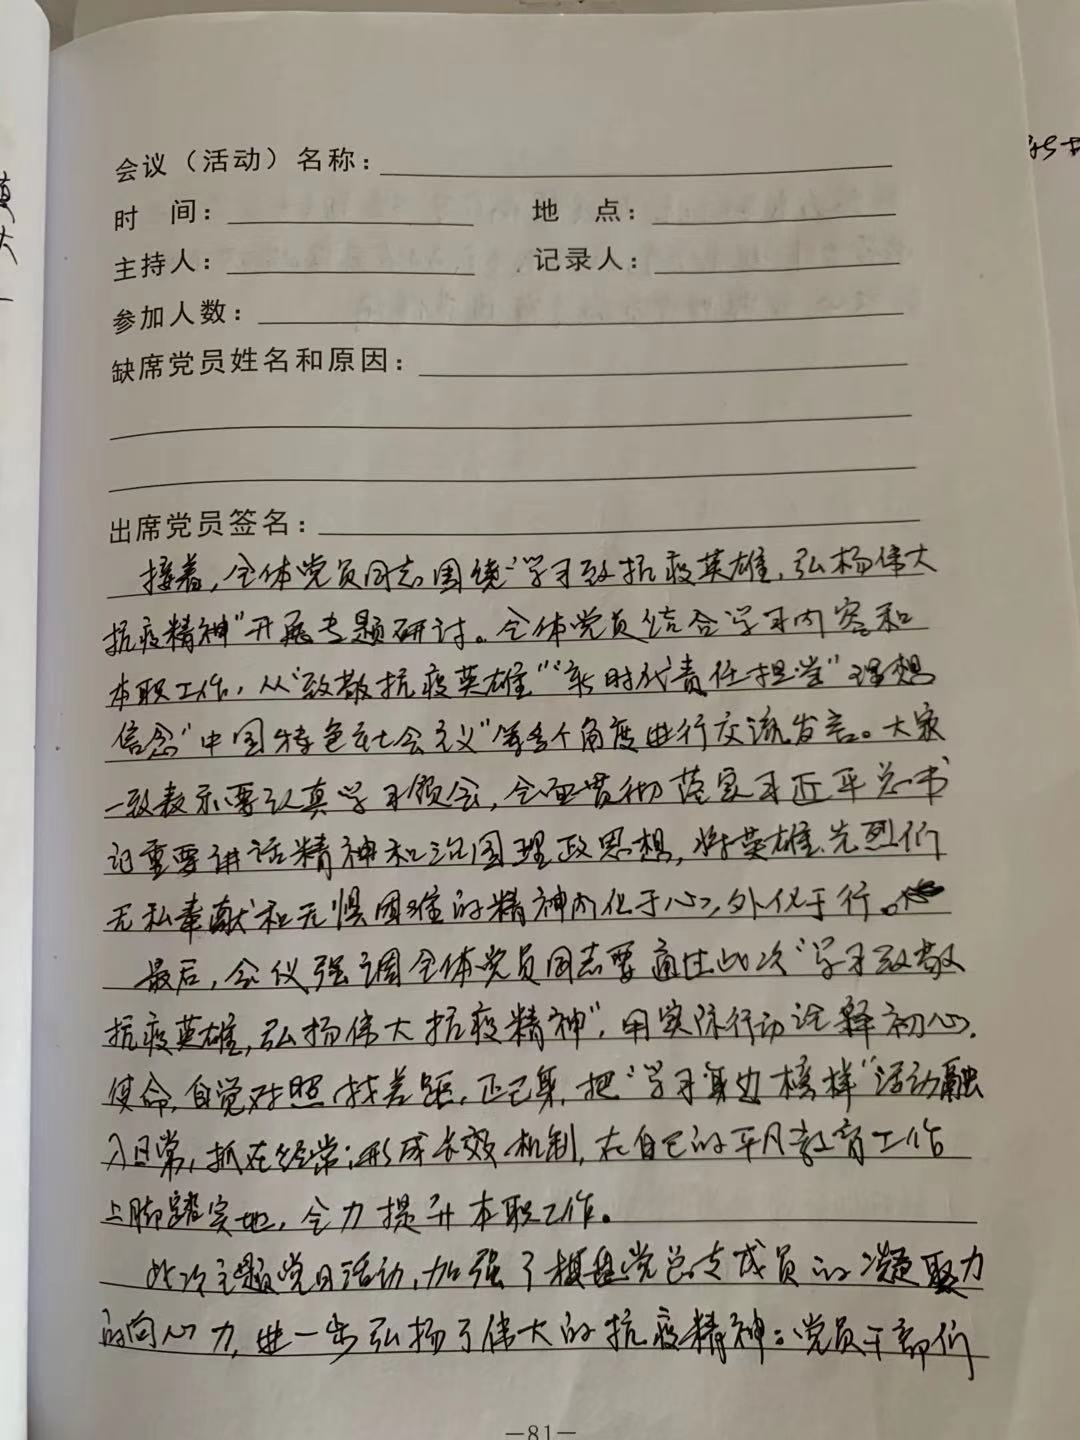 会议（活动）名称：
时 间： 地 点：
主持人： 记录人：
参加人数：
缺席党员姓名和原因：
出席党员签名：
接着，全体党员同志围绕“学习致抗疫英雄，弘扬伟大
抗疫精神”开展专题研讨。全体党员结合学习内容和
本职工作，从“致敬抗疫英雄”“新时代责任担当”理想
信念“中国特色社会主义”等多个角度进行交流发言。大家
一致表示要认真学习领会，全面贯彻落实习近平总书
记重要讲话精神和治国理政思想，将英雄、先烈们
无私奉献和无惧困难的精神内化于心，外化于行。
最后，会议强调全体党员同志要通过此次“学习致敬
抗疫英雄，弘扬伟大抗疫精神”，用实际行动诠释初心，
使命，自觉对照找差距，正己身，把“学习身边榜样”活动融
入日常，抓在经常；形成长效机制，在自己的平凡教育工作
上脚踏实地，全力提升本职工作。
此次主题党日活动，加强了棋盘党总支成员的凝聚力
的向心力，进一步弘扬了伟大的抗疫精神：党员干部们
—81—